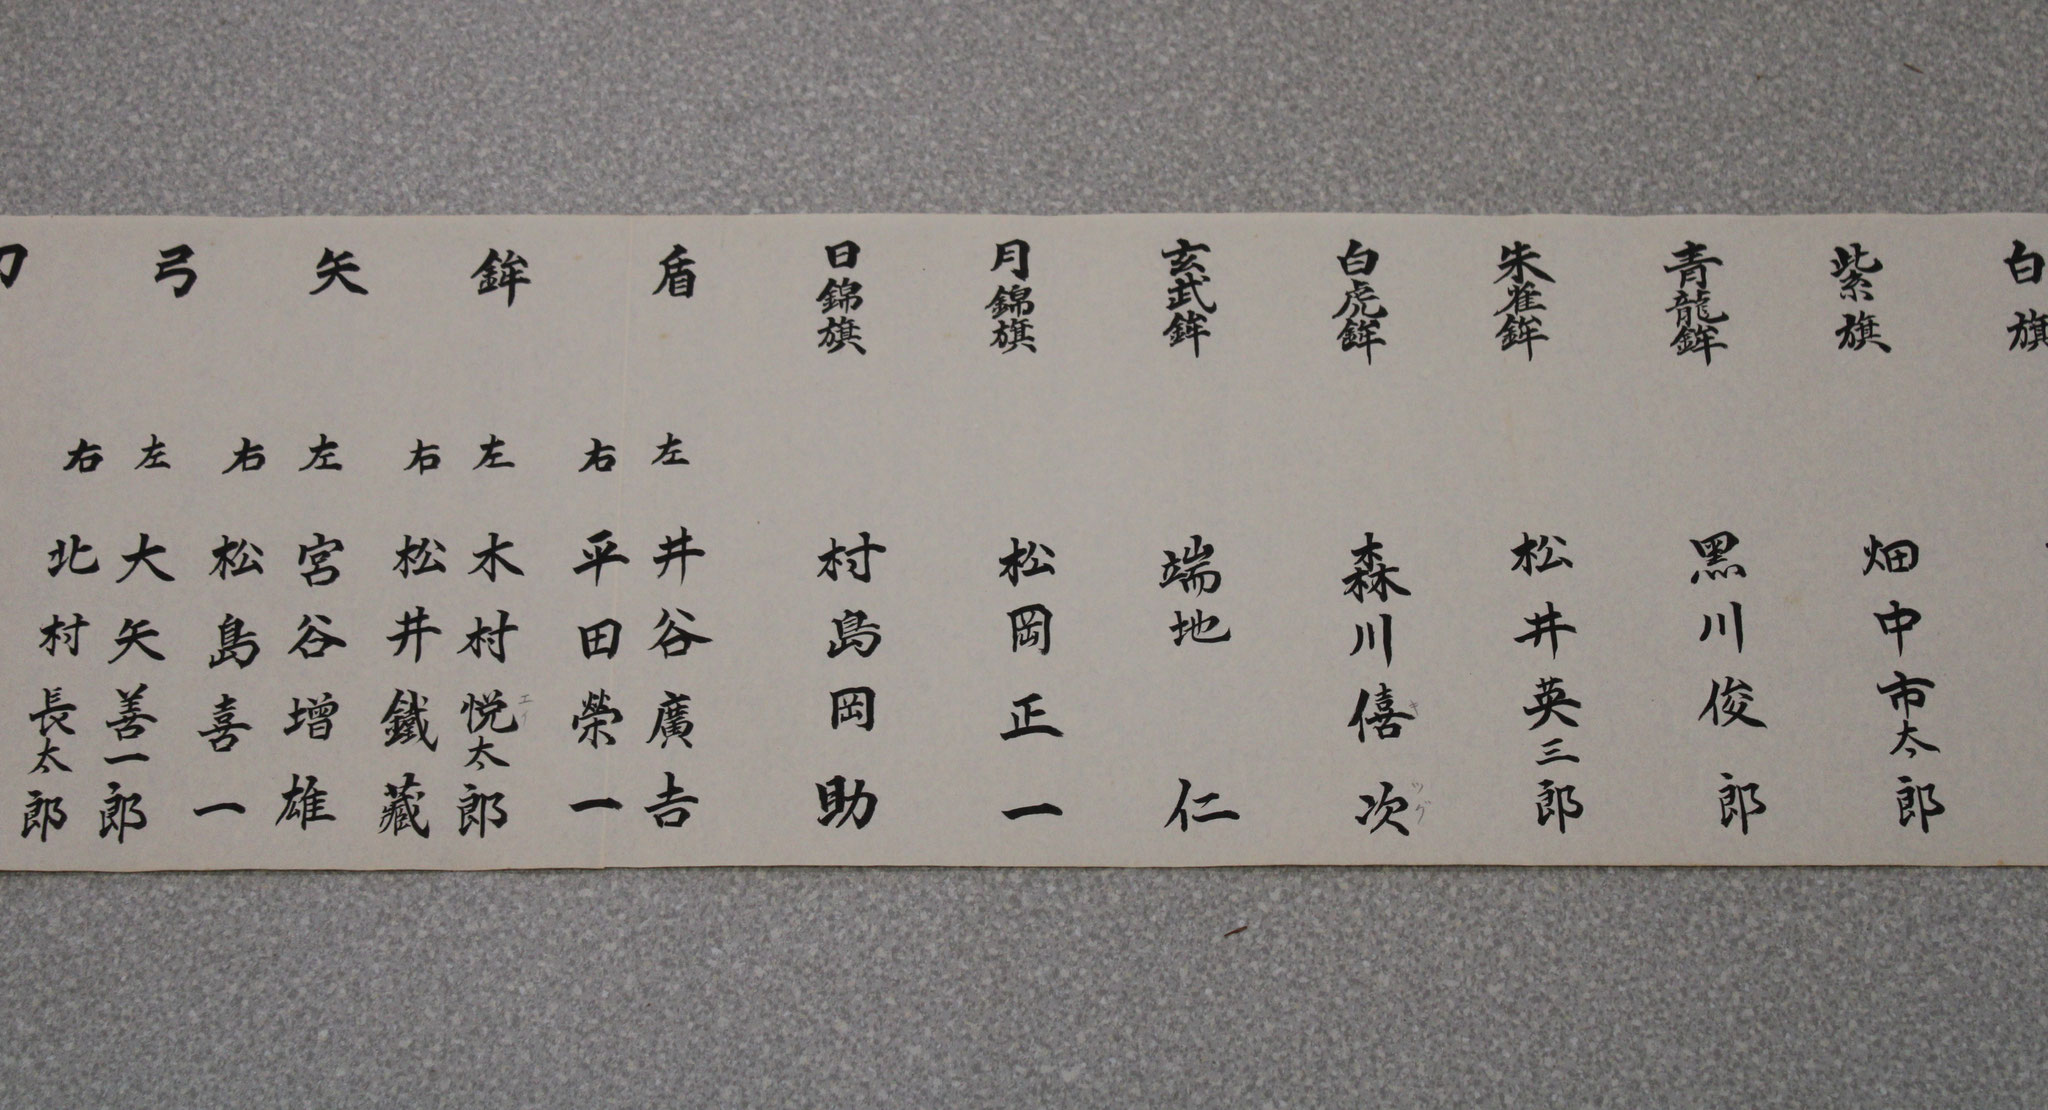 白旗
紫旗 畑中市太郎
青龍鉾 黒川俊郎
朱雀鉾 松井英三郎
白虎鉾 森川僖次
キ ツグ
玄武鉾 端地仁
月錦旗 松岡正一
日錦旗 村島岡助
盾 左 井谷廣吉
右 平田榮一
鉾 左 木村悦太郎
エイ
右 松井鐵藏
矢 左 宮谷增雄
右 松島喜一
弓 左 大矢善一郎
右 北村長太郎